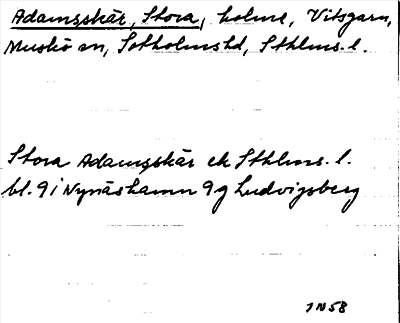 Adamsskär, Stora, holme, Vitsgarn,
Muskö sn, Sotholms hd, Sthlms. l.
Stora Adamsskär ek Sthlms. l.
bl. 9 i Nynäshamn 9g Ludvigsberg
JN58